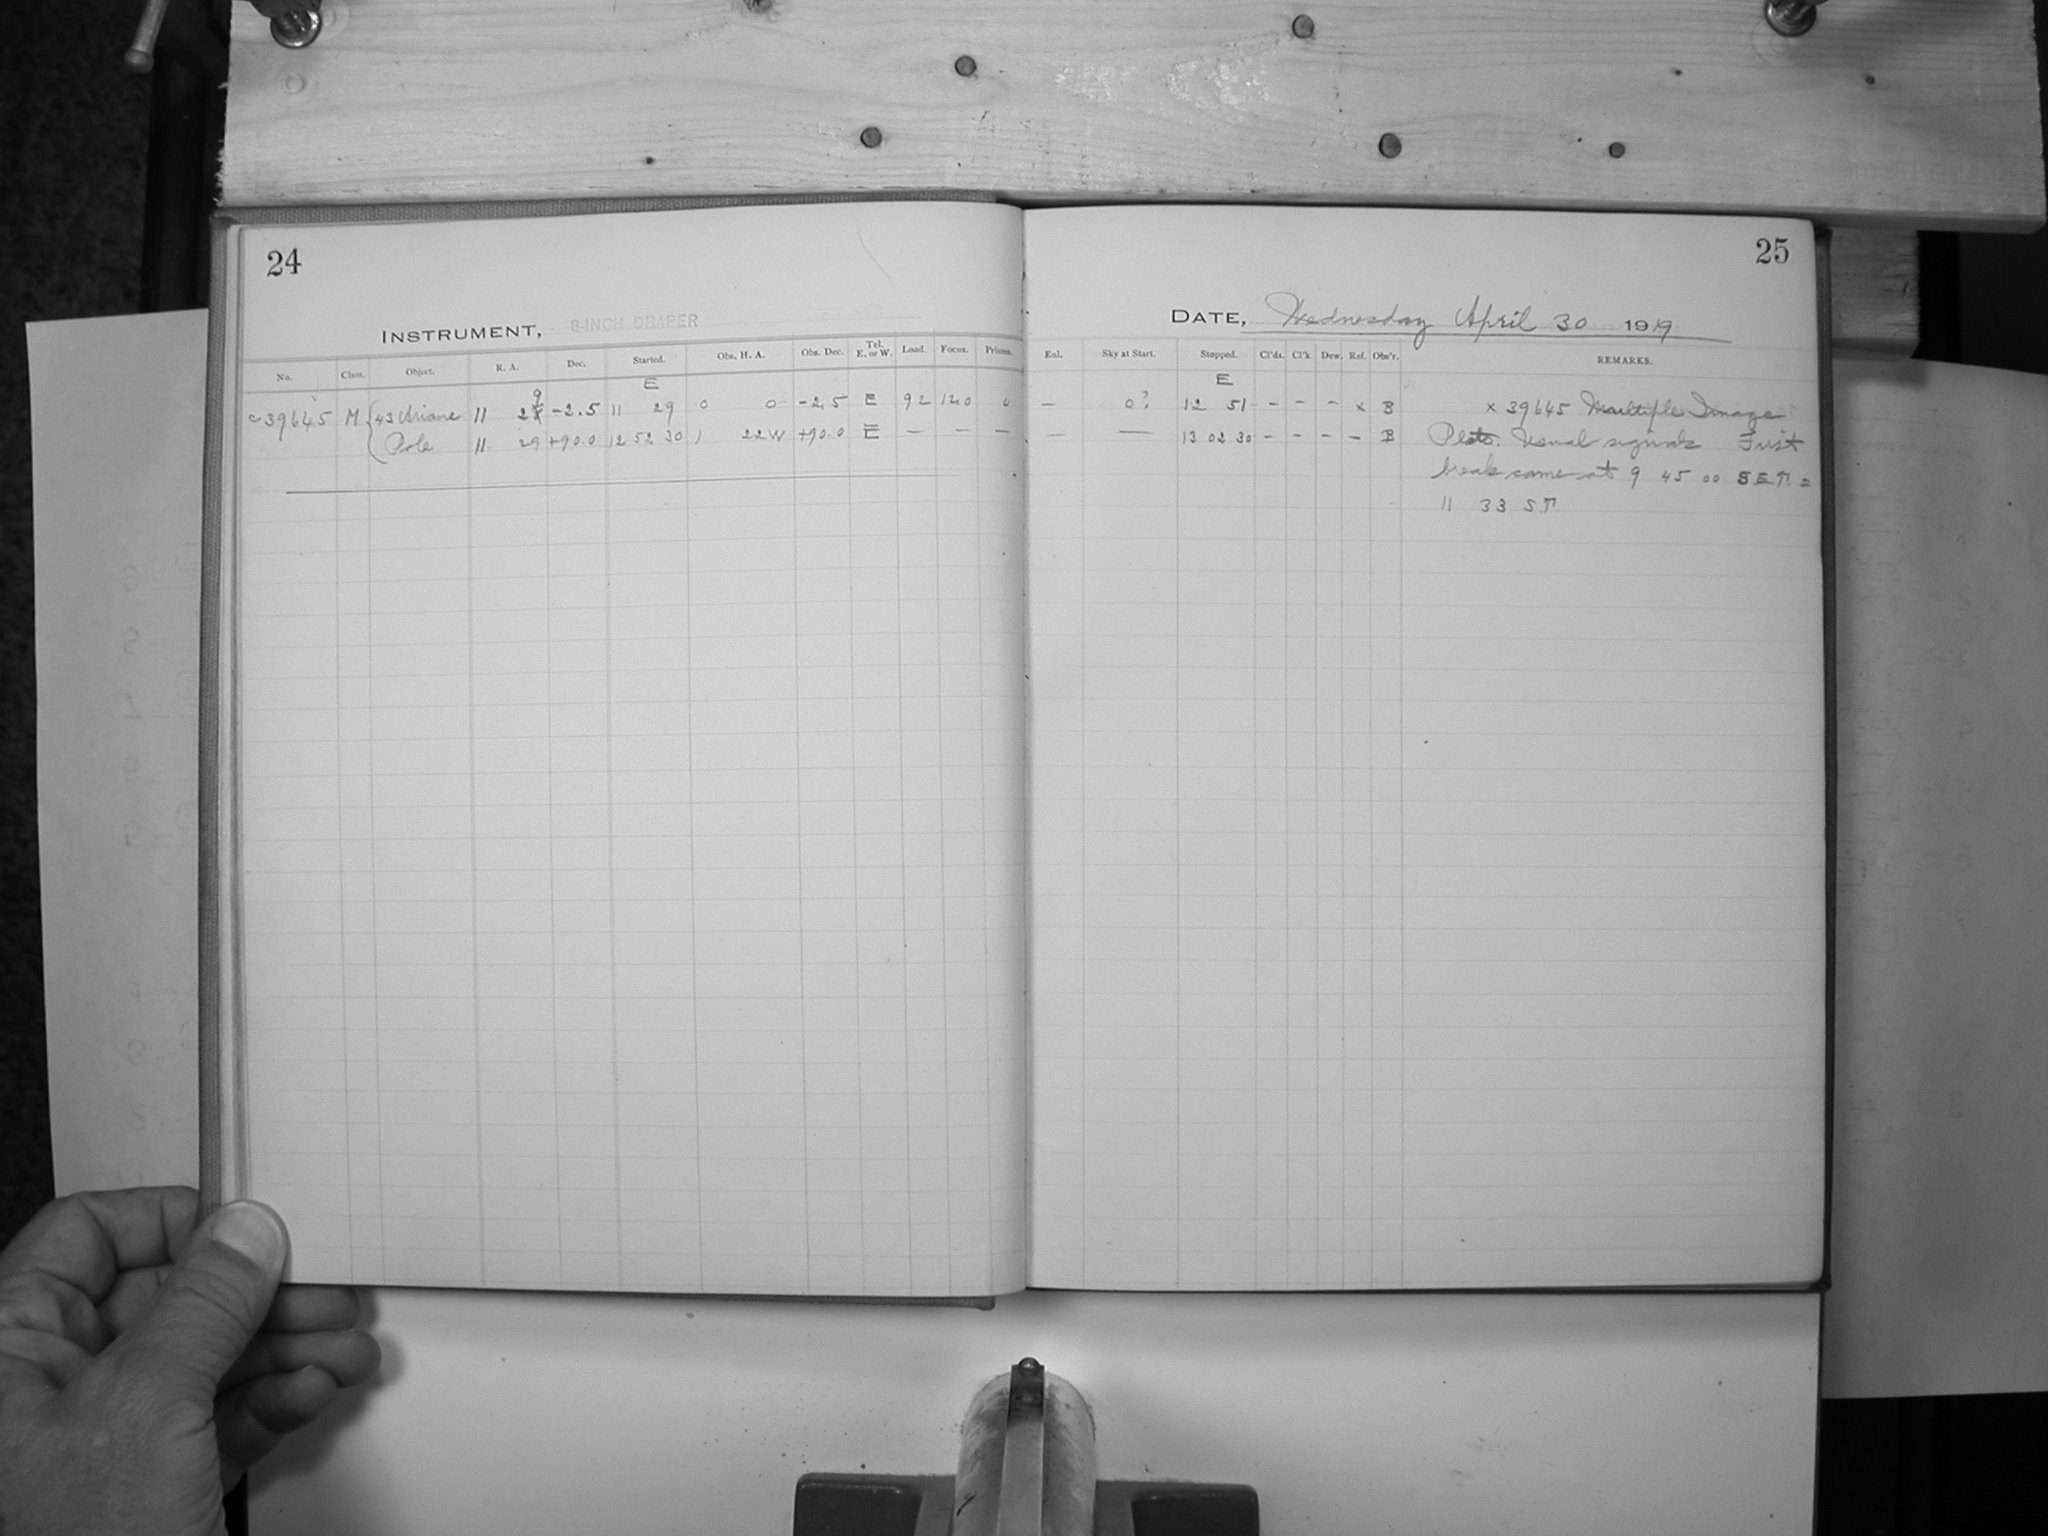 24
INSTRUMENT, 8-INCH DRAPER
No. Class. Object. R. A. Dec. Started. Obs. H. A. Obs. Dec. Tel. E. or W. Load. Focus. Prisms.
E
9
c 39645 M 43 Ariane 11 28 -2.5 11 29 0 0 -2.5 E 92 120 0
Pole 11 29 +90.0 12 52 30 1 22W +90.0 E — — —
25
DATE, Wednesday April 30 1919
Enl. Sky at Start. Stopped. Cl'ds. Cl'k. Dew. Ref. Obs'r. REMARKS.
E
— 0? 12 51 - - - x B x 39645 Multiple Image
— — 13 02 30 - - - - B Plate. Usual signals First
break came at 9 45 00 S.E.T. =
11 33 S.T.